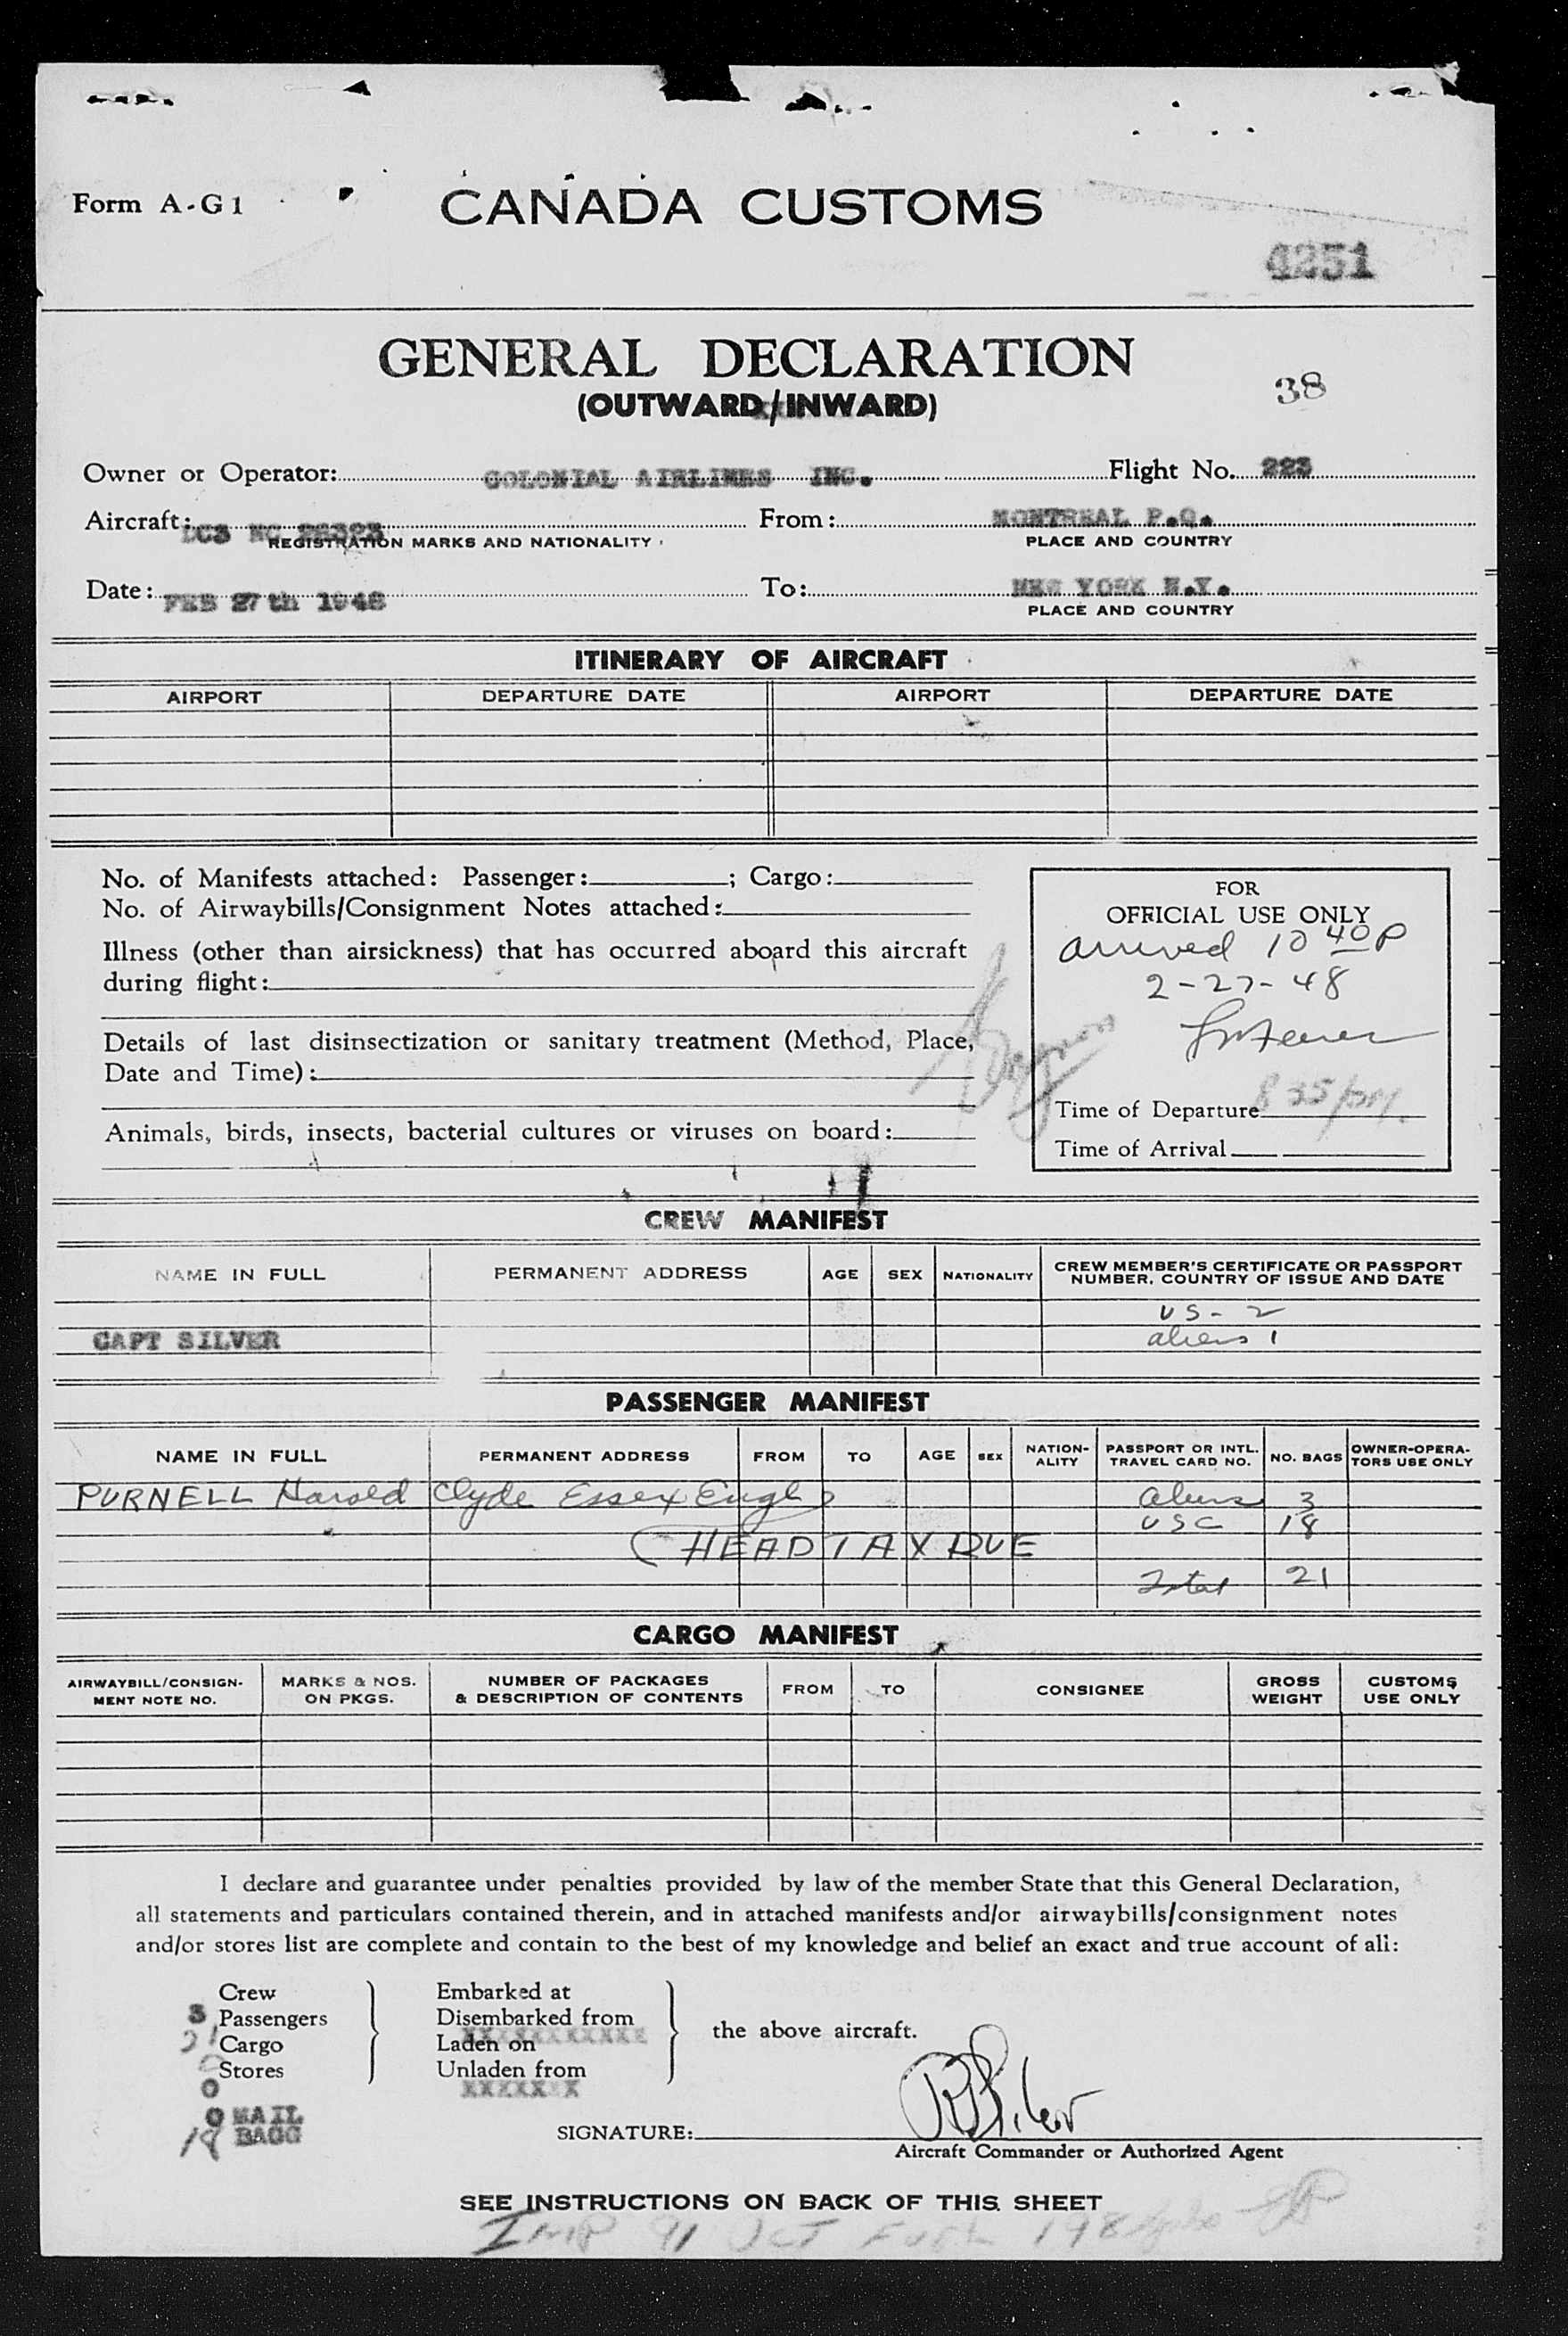 Form A-G1
CANADA CUSTOMS
4251
GENERAL DECLARATION
(OUTWARD/INWARD)
38
Owner or Operator: COLONIAL AIRLINES INC. Flight No. 223
Aircraft: DC3 NC From: MONTREAL P.Q.
REGISTRATION MARKS AND NATIONALITY PLACE AND COUNTRY
Date: FEB 27th 1948 To: NEW YORK N.Y.
PLACE AND COUNTRY
ITINERARY OF AIRCRAFT
AIRPORT DEPARTURE DATE AIRPORT DEPARTURE DATE
No. of Manifests attached: Passenger: ; Cargo:
No. of Airwaybills/Consignment Notes attached:
Illness (other than airsickness) that has occurred aboard this aircraft
during flight:
Details of last disinsectization or sanitary treatment (Method, Place,
Date and Time):
Animals, birds, insects, bacterial cultures or viruses on board:
FOR
OFFICIAL USE ONLY
arrived 10 40 P
2-27-48
Time of Departure 8 35/pm.
Time of Arrival
CREW MANIFEST
NAME IN FULL PERMANENT ADDRESS AGE SEX NATIONALITY CREW MEMBER'S CERTIFICATE OR PASSPORT NUMBER, COUNTRY OF ISSUE AND DATE
US - 2
CAPT SILVER aliens 1
PASSENGER MANIFEST
NAME IN FULL PERMANENT ADDRESS FROM TO AGE SEX NATION-ALITY PASSPORT OR INTL. TRAVEL CARD NO. NO. BAGS OWNER-OPERA-TORS USE ONLY
PURNELL Harold Clyde Essex Engl aliens 3
USC 18
HEAD TAX DUE
Total 21
CARGO MANIFEST
AIRWAYBILL/CONSIGN-MENT NOTE NO. MARKS & NOS. ON PKGS. NUMBER OF PACKAGES & DESCRIPTION OF CONTENTS FROM TO CONSIGNEE GROSS WEIGHT CUSTOMS USE ONLY
I declare and guarantee under penalties provided by law of the member State that this General Declaration,
all statements and particulars contained therein, and in attached manifests and/or airwaybills/consignment notes
and/or stores list are complete and contain to the best of my knowledge and belief an exact and true account of all:
Crew Embarked at
3 Passengers Disembarked from
21 Cargo Laden on the above aircraft.
0 Stores Unladen from
0
0 MAIL
18 BAGG
SIGNATURE: R Silver
Aircraft Commander or Authorized Agent
SEE INSTRUCTIONS ON BACK OF THIS SHEET